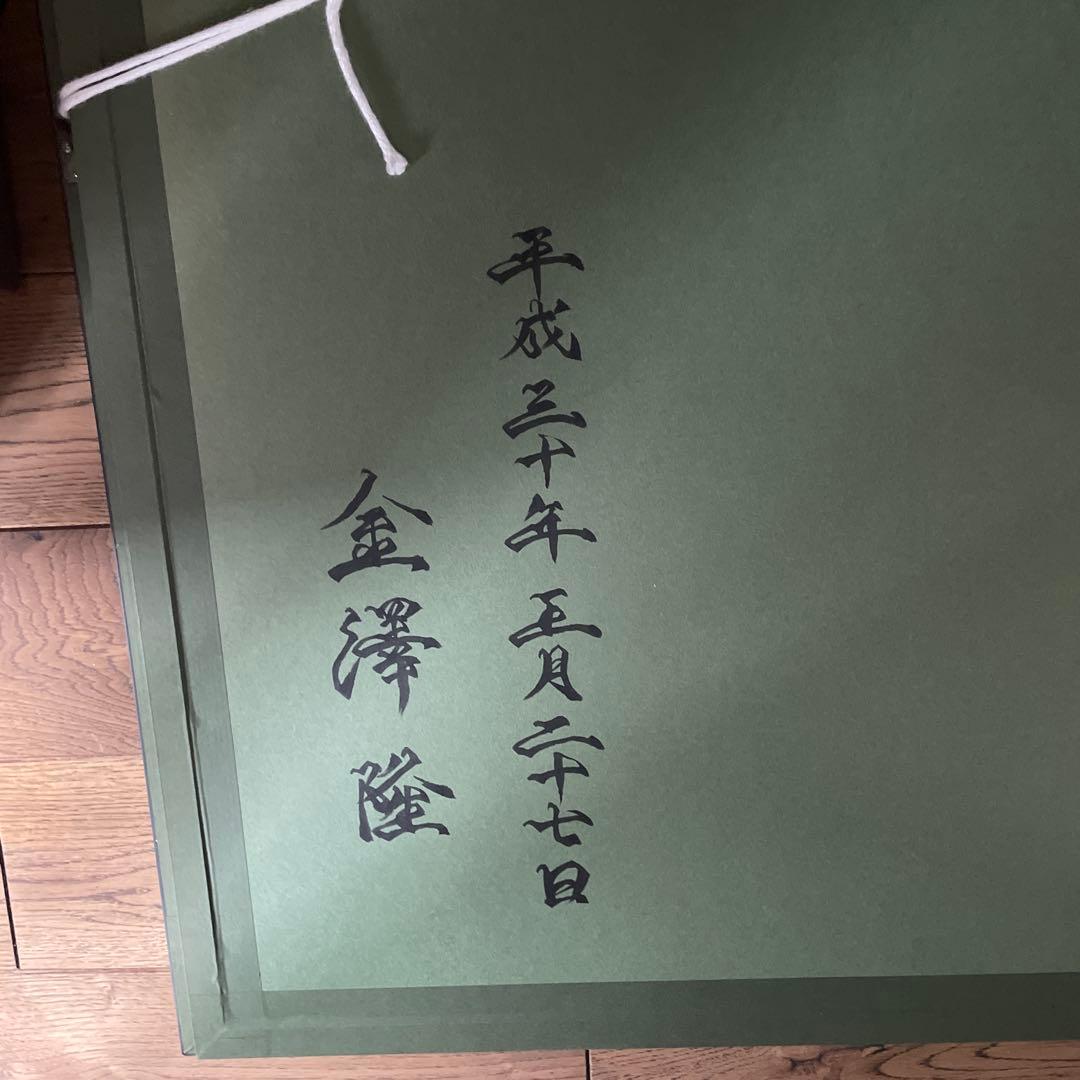 平成三十年正月二十七日
金澤隆